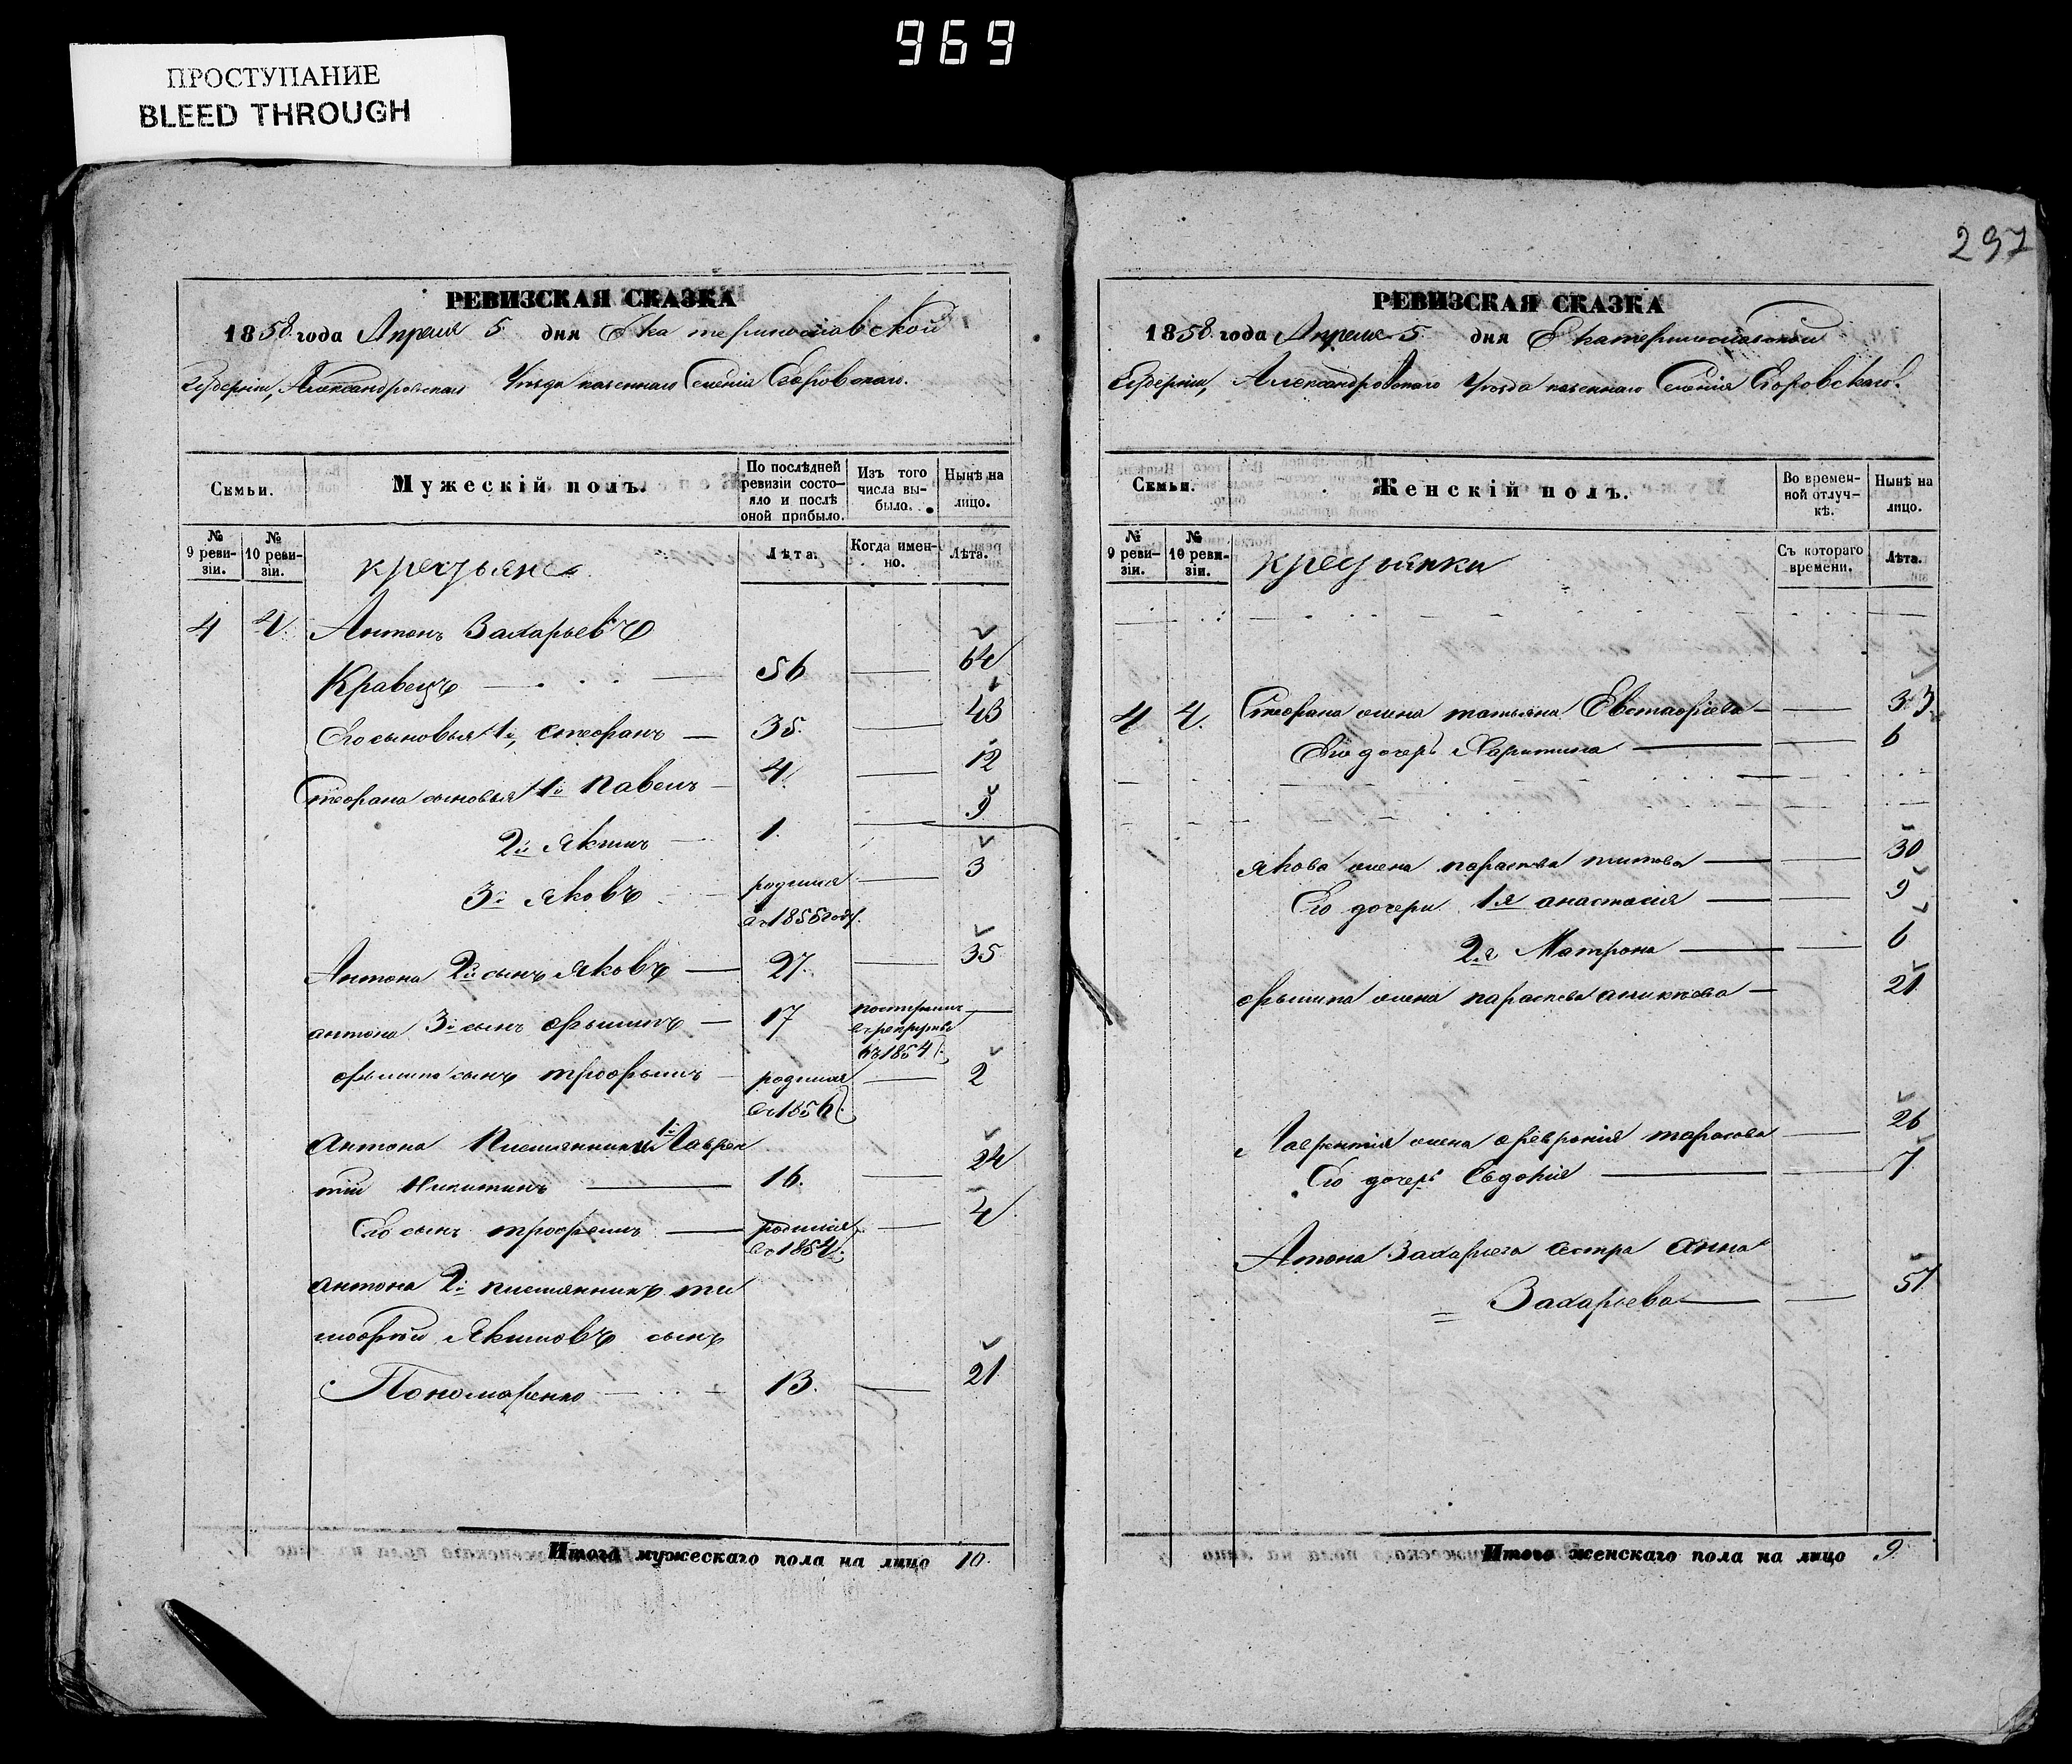 969
ПРОСТУПАНИЕ
BLEED THROUGH
РЕВИЗСКАЯ СКАЗКА
1858 года Апреля 5 дня Екатеринославской
Губерніи, Александровскаго Уезда казеннаго Селенія Егоровскаго.
Семьи.
Мужескій полъ.
По послѣдней ревизіи состояло и послѣ оной прибыло.
Изъ того числа выбыло.
Нынѣ на лицо.
№ 9 ревизіи.
№ 10 ревизіи.
крестьяне
Лѣта.
Когда именно.
Лѣта.
4 4. Антонъ Захарьевъ
Кравецъ 56 64
Его сыновья 1й, Стефанъ 35. 43
Стефана сыновья 1й Павелъ 4. 12
2й Якимъ 1. 9
3й Яковъ родился 3
въ 1855 году
Антона 2й сынъ Яковъ 27. 35
антона 3й сынъ Фылипъ 17 поступилъ
въ рекруты
въ 1854
Фылипа сынъ трофымъ родился 2
въ 1856
Антона Племянники 1й Лаврен
тій Никитинъ 16. 24
Его сынъ трофимъ родился 4
въ 1854
антона 2й племянникъ ти
мофей Якимовъ сынъ
Пономаренко 13. 21
Итого мужескаго пола на лицо 10.
297
РЕВИЗСКАЯ СКАЗКА
1858 года Апреля 5 дня Екатеринославской
Губерніи, Александровскаго Уезда казеннаго Селенія Егоровскаго.
Семьи.
Женскій полъ.
Во временной отлучкѣ.
Нынѣ на лицо.
№ 9 ревизіи.
№ 10 ревизіи.
крестьянки
Съ котораго времени.
Лѣта.
4 4. Стефана жена татьяна Евстафіева 33
Его дочерь Харитина 6
Якова жена параскева титова 30
Его дочери 1я анастасія 9
2я Матрона 6
Фылипа жена параскева 21
Лаврентія жена Февронія тарасова 26
Его дочерь Евдокія 7
Атона Захарьева сестра анна
Захарьева 57
Итого женскаго пола на лицо 9.